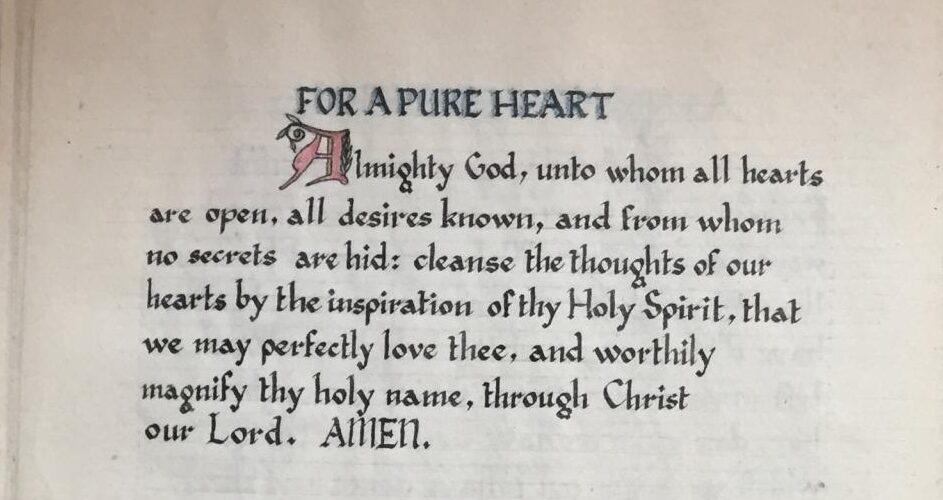 FOR A PURE HEART
Almighty God, unto whom all hearts
are open, all desires known, and from whom
no secrets are hid: cleanse the thoughts of our
hearts by the inspiration of thy Holy Spirit, that
we may perfectly love thee, and worthily
magnify thy holy name, through Christ
our Lord. AMEN.